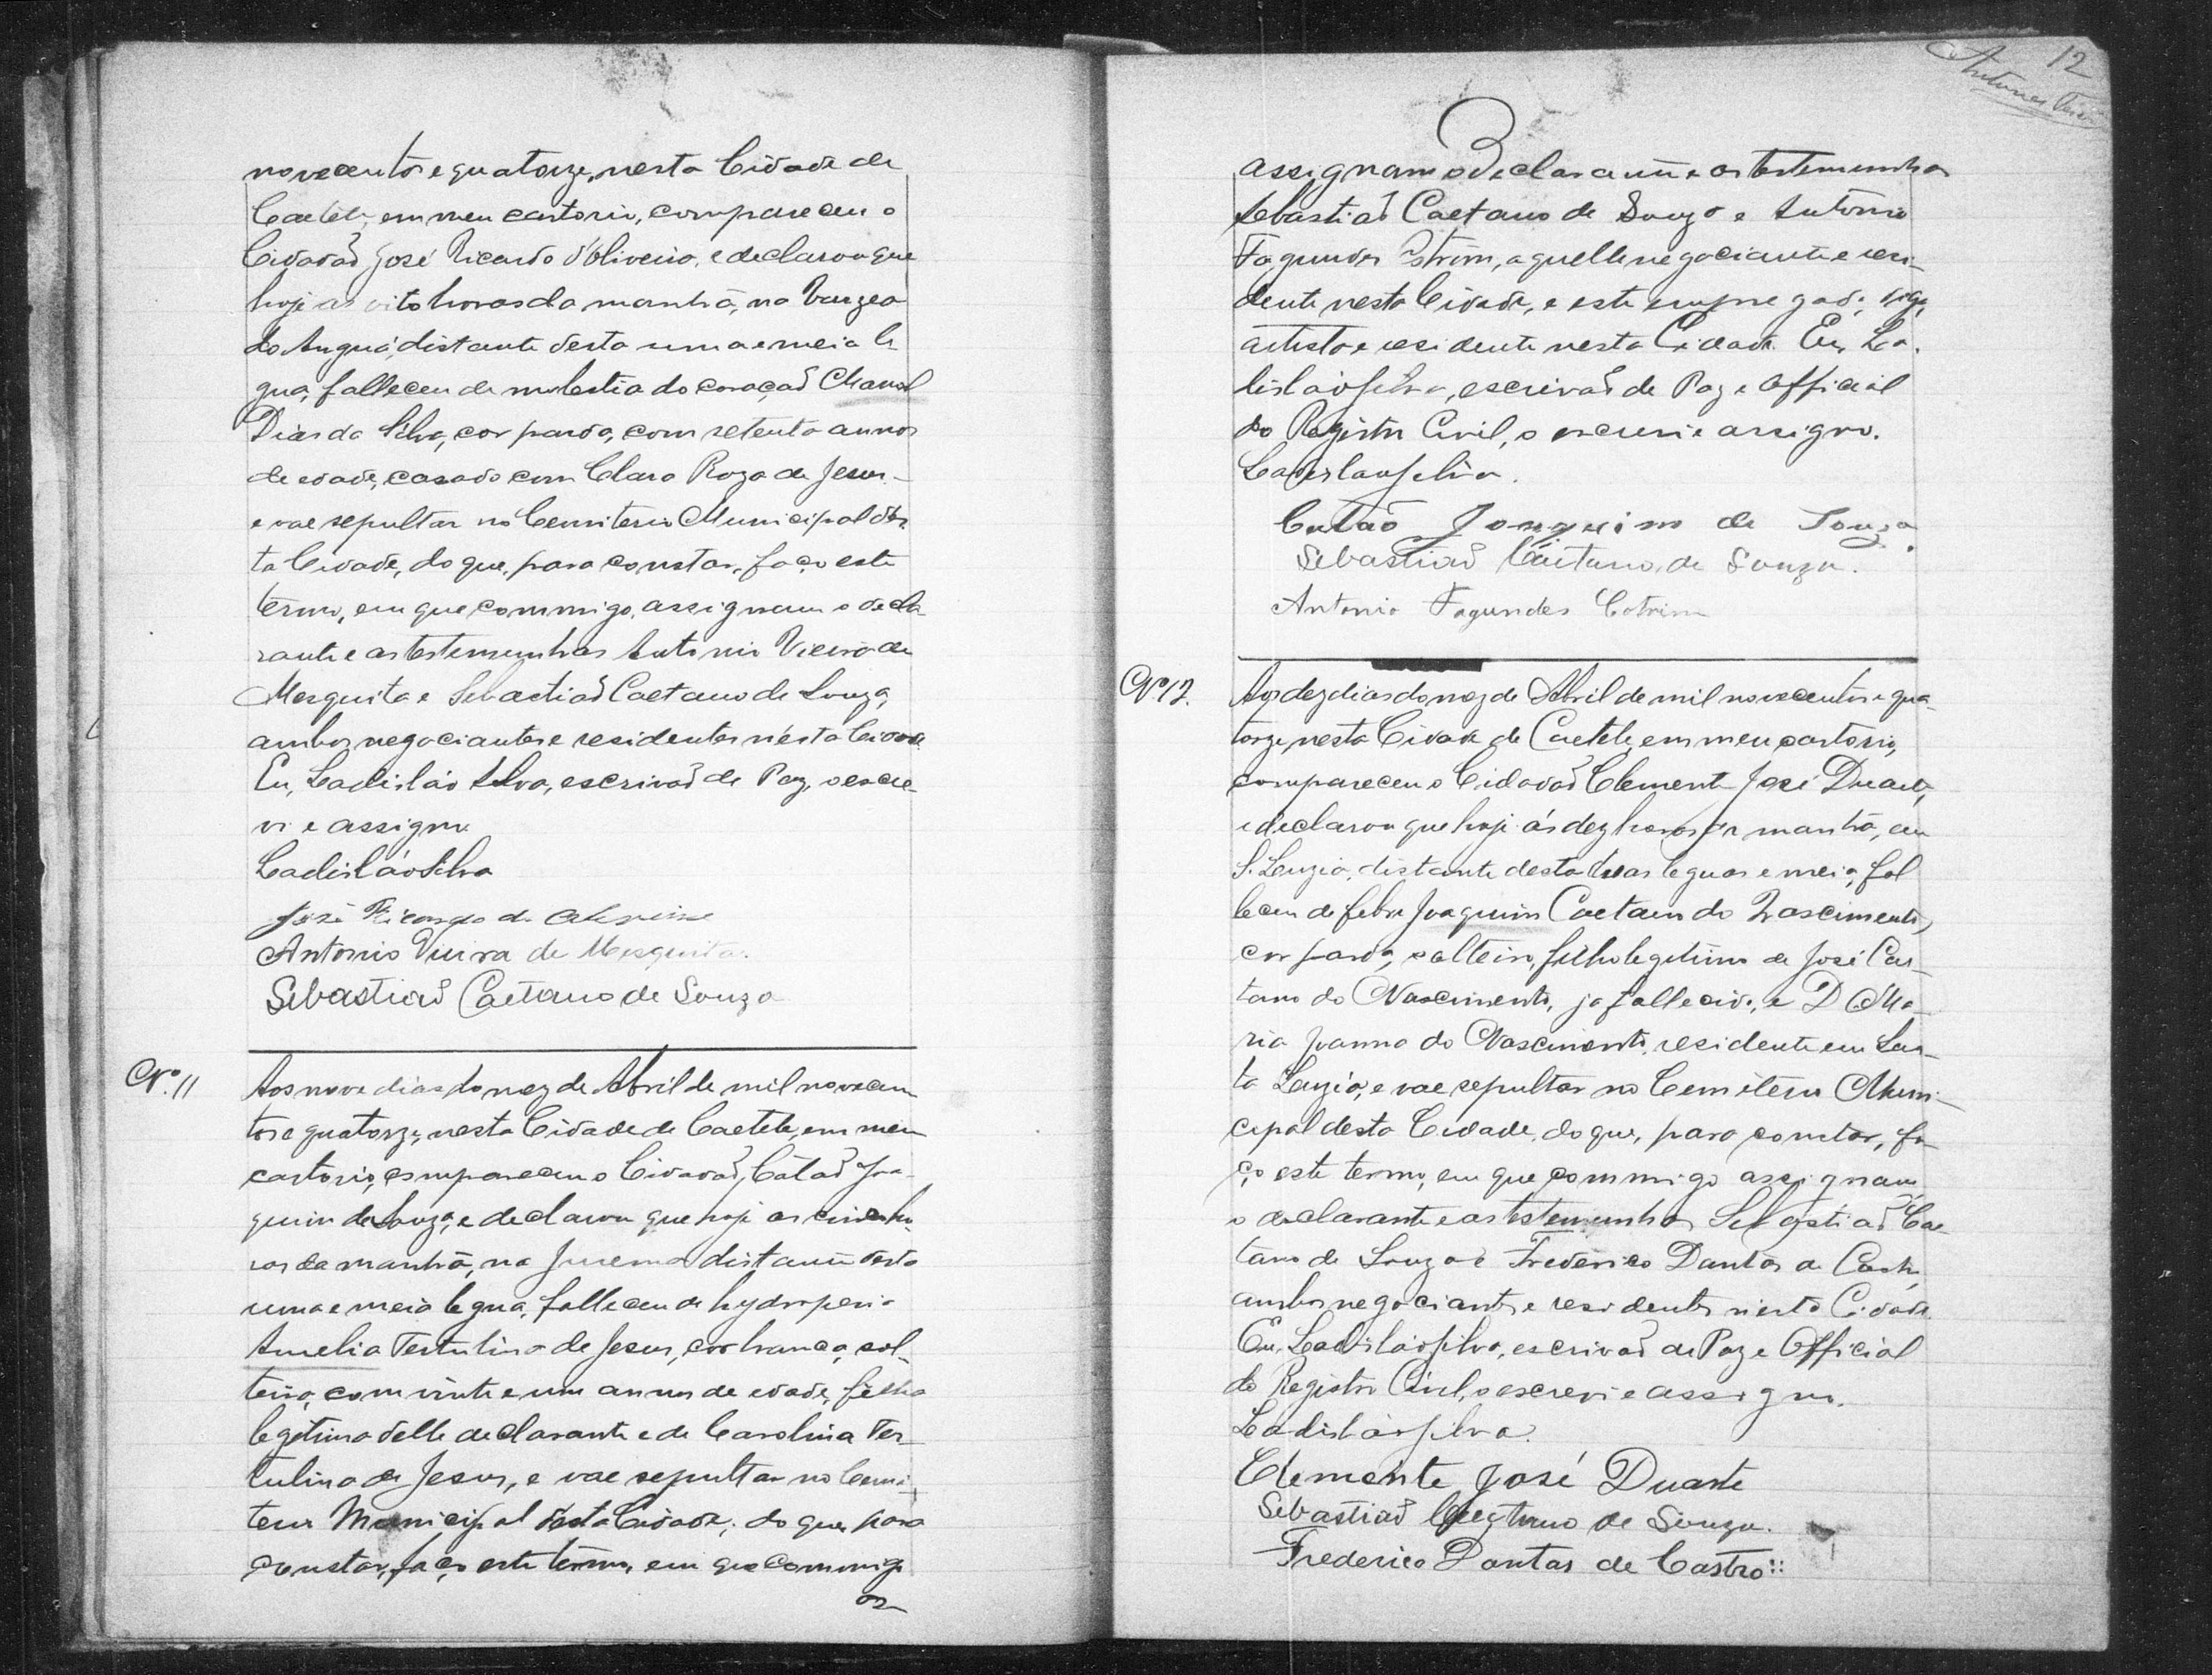 novecentos e quatorze, nesta Cidade de
Caeteté, em meu cartorio, compareceu o
Cidadaõ José Ricardo d'Oliveira, e declarou que
hoje as oito horas da manhã, na Varzea
do Angua, distante desta uma e meia le
gua, falleceu de molestia do coraçaõ Manoel
Dias da Silva, cor parda, com setenta annos
de edade, casado com Clara Roza de Jesus
e vae sepultar no Cemiterio Municipal des
ta Cidade, do que, para constar, faço este
termo, em que commigo, assignam o decla
rante e as testemunhas Antonio Vieira de
Mesquita e Sebastiaõ Caetano de Souza,
ambos negociantes e residentes nésta Cidade
Eu, Ladisláo Silva, escrivaõ de Paz, o escre-
vi e assigno
Ladisláo Silva
José Ricardo de Oliveira
Antonio Vieira de Mesquita.
Sebastiaõ Caetano de Souza
Nº. 11
Aos nove dias do mez de Abril de mil novecen
tos e quatorze, nesta Cidade de Caeteté, em meu
cartorio, compareceu o Cidadaõ, Cataõ Joa-
quim de Souza, e declarou que hoje as cinco ho-
ras da manhã, na Jurema distante desta
uma e meia legua, falleceu de hydropesia
Amelia Tertulina de Jesus, cor branca, sol-
teira, com vinte e um annos de edade, filha
legitima delle declarante e de Carolina Ter-
tulina de Jesus, e vae sepultar no Cemi-
terio Municipal desta Cidade; do que, para
constar, faço este termo, em que commigo
as
12
Antunes
assignam o declarante e as testemunhas
Sebastiaõ Caetano de Souza e Antonio
Fagundes Cotrim, aquelle negociante e resi-
dente nesta Cidade, e este empregado, digo,
artista e residente nesta Cidade. Eu, La-
disláo Silva, escrivaõ de Paz e Official
do Registro Civil, o escrevi e assigno.
Ladisláo Silva.
Cataõ Joaquim de Souza.
Sebastiaõ Caetano de Souza.
Antonio Fagundes Cotrim
Nº 12.
Aos dez dias do mez de Abril de mil novecentos e qua-
torze, nesta Cidade de Caeteté, em meu cartorio,
compareceu o Cidadaõ Clemente José Duarte,
e declarou que hoje ás dez horas da manhã, em
S. Luzia, distante desta duas leguas e meia, fal
leceu de febre Joaquim Caetano do Nascimento,
cor parda, solteiro, filho legitimo de José Cae-
tano do Nascimento, ja fallecido, e D Ma-
ria Joanna do Nascimento, residente em San-
ta Luzia, e vae sepultar no Cemiterio Muni-
cipal desta Cidade, do que, para constar, fa-
ço este termo, em que commigo assignam
o declarante e as testemunhas Sebastiaõ Cae-
tano de Souza e Frederico Dantas de Castro,
ambos negociantes e residentes nesta Cidade.
Eu, Ladisláo Silva, escrivaõ de Paz e Official
do Registro Civil, o escrevi e assigno.
Ladisláo Silva.
Clemente José Duarte
Sebastiaõ Caetano de Souza.
Frederico Dantas de Castro::